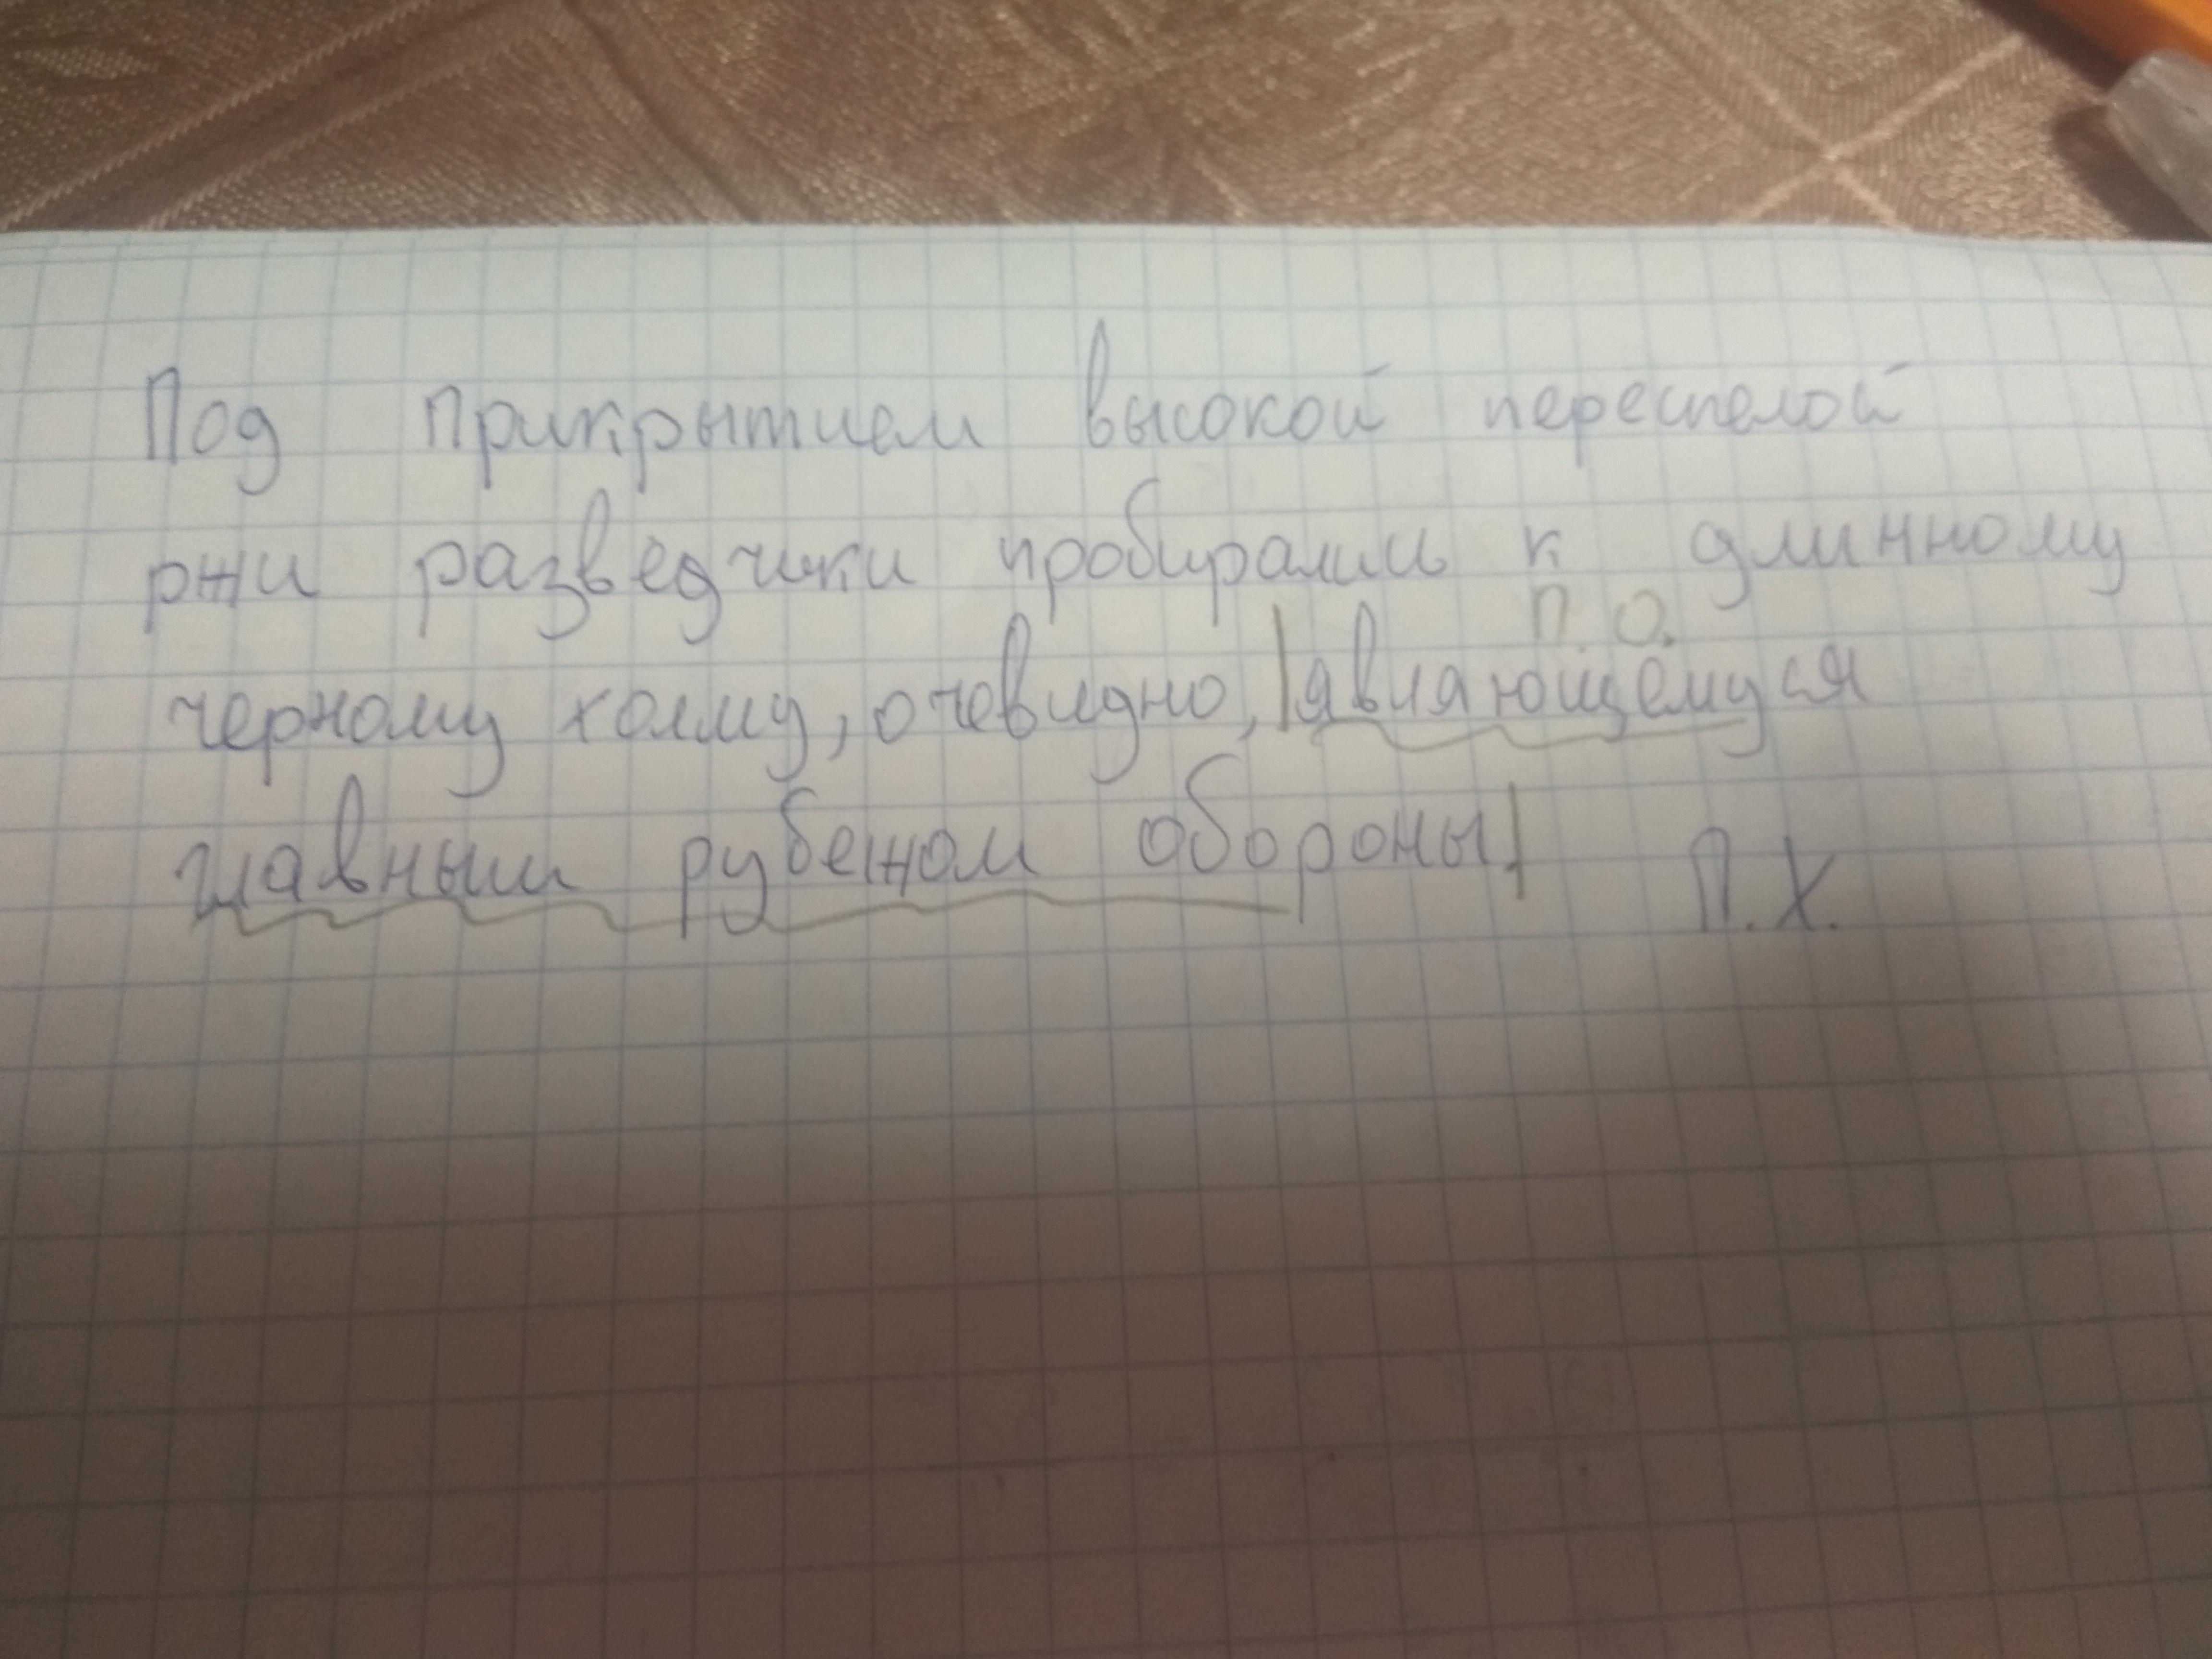 Под прикрытием высокой переспелой
ржи разведчики пробирались к длинному
п о.
черному холму, очевидно, |являющемуся
главным рубежом обороны.| П.Х.